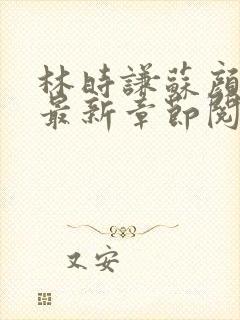 林時謙蘇顏
最新章節閱
又安